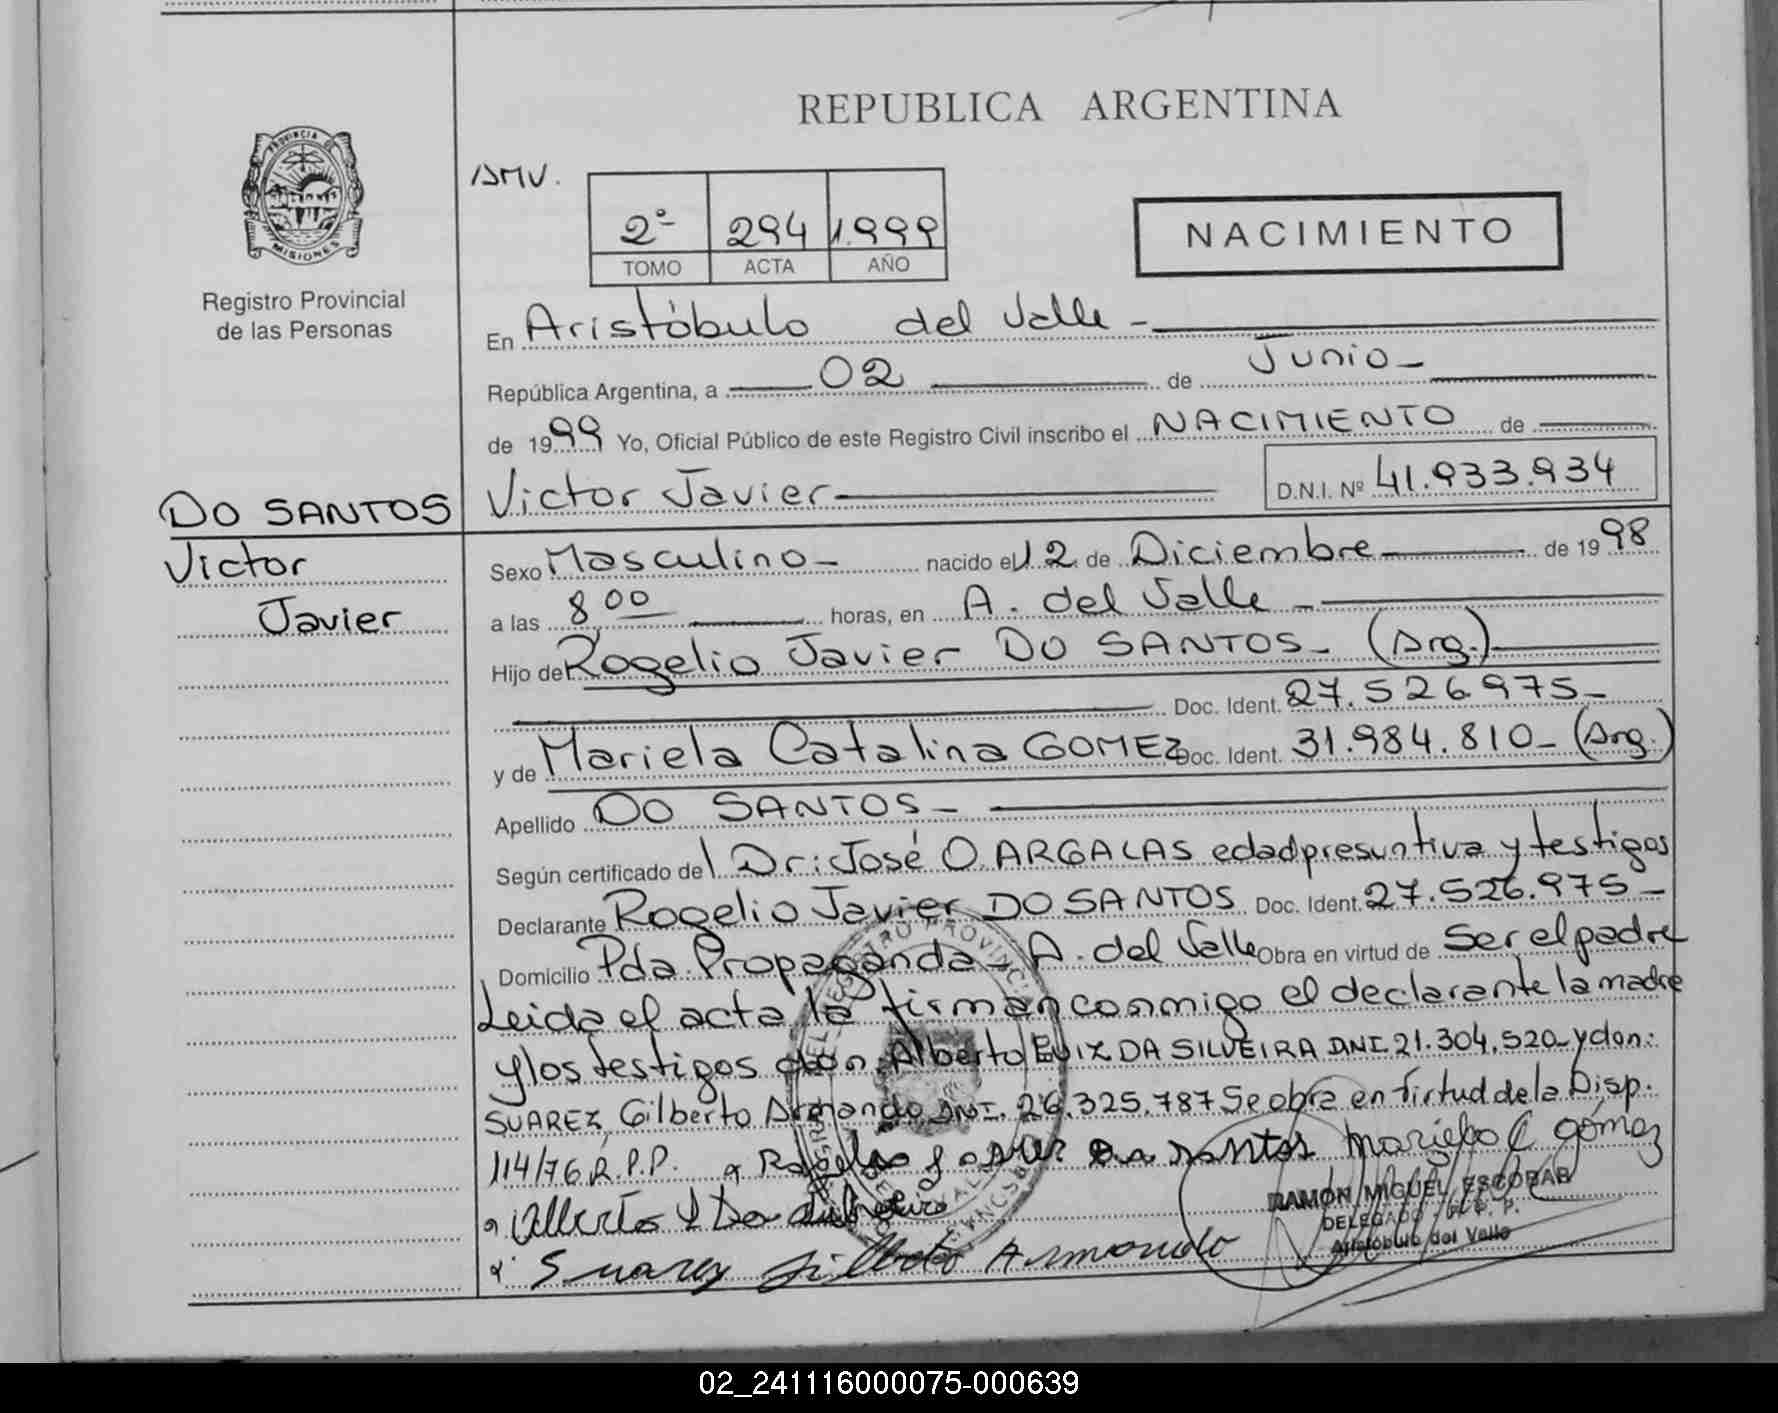 REPUBLICA ARGENTINA
PROVINCIA DE
MISIONES
Registro Provincial
de las Personas
AMV.
2º 294 1.999
TOMO ACTA AÑO
NACIMIENTO
En Aristóbulo del Valle -
República Argentina, a 02 de Junio -
de 1999 Yo, Oficial Público de este Registro Civil inscribo el NACIMIENTO de
DO SANTOS Victor Javier D.N.I. Nº 41.933.934
Victor
Javier
Sexo Masculino - nacido el 12 de Diciembre de 1998
a las 8,00 horas, en A. del Valle -
Hijo de Rogelio Javier DO SANTOS - (Arg.)
Doc. Ident. 27.526975 -
y de Mariela Catalina GOMEZ Doc. Ident. 31.984.810 - (Arg.)
Apellido DO SANTOS -
Según certificado de l Dr: José O. ARGALAS edad presuntiva y testigos
Declarante Rogelio Javier DO SANTOS Doc. Ident. 27.526.975 -
Domicilio Pda. Propaganda - A. del Valle Obra en virtud de Ser el padre
Leida el acta la firman conmigo el declarante la madre
y los testigos don Alberto LUIZ DA SILVEIRA DNI 21.304.520 - y don:
SUAREZ, Gilberto Armando, DNI. 26.325.787 Se obra en Virtud de la Disp.
114/76 R.P.P. Mariela C gómez
Alberto
Suarez Gilberto Armando
RAMON MIGUEL ESCOBAR
DELEGADO - R. P. P.
Aristóbulo del Valle
02_241116000075-000639